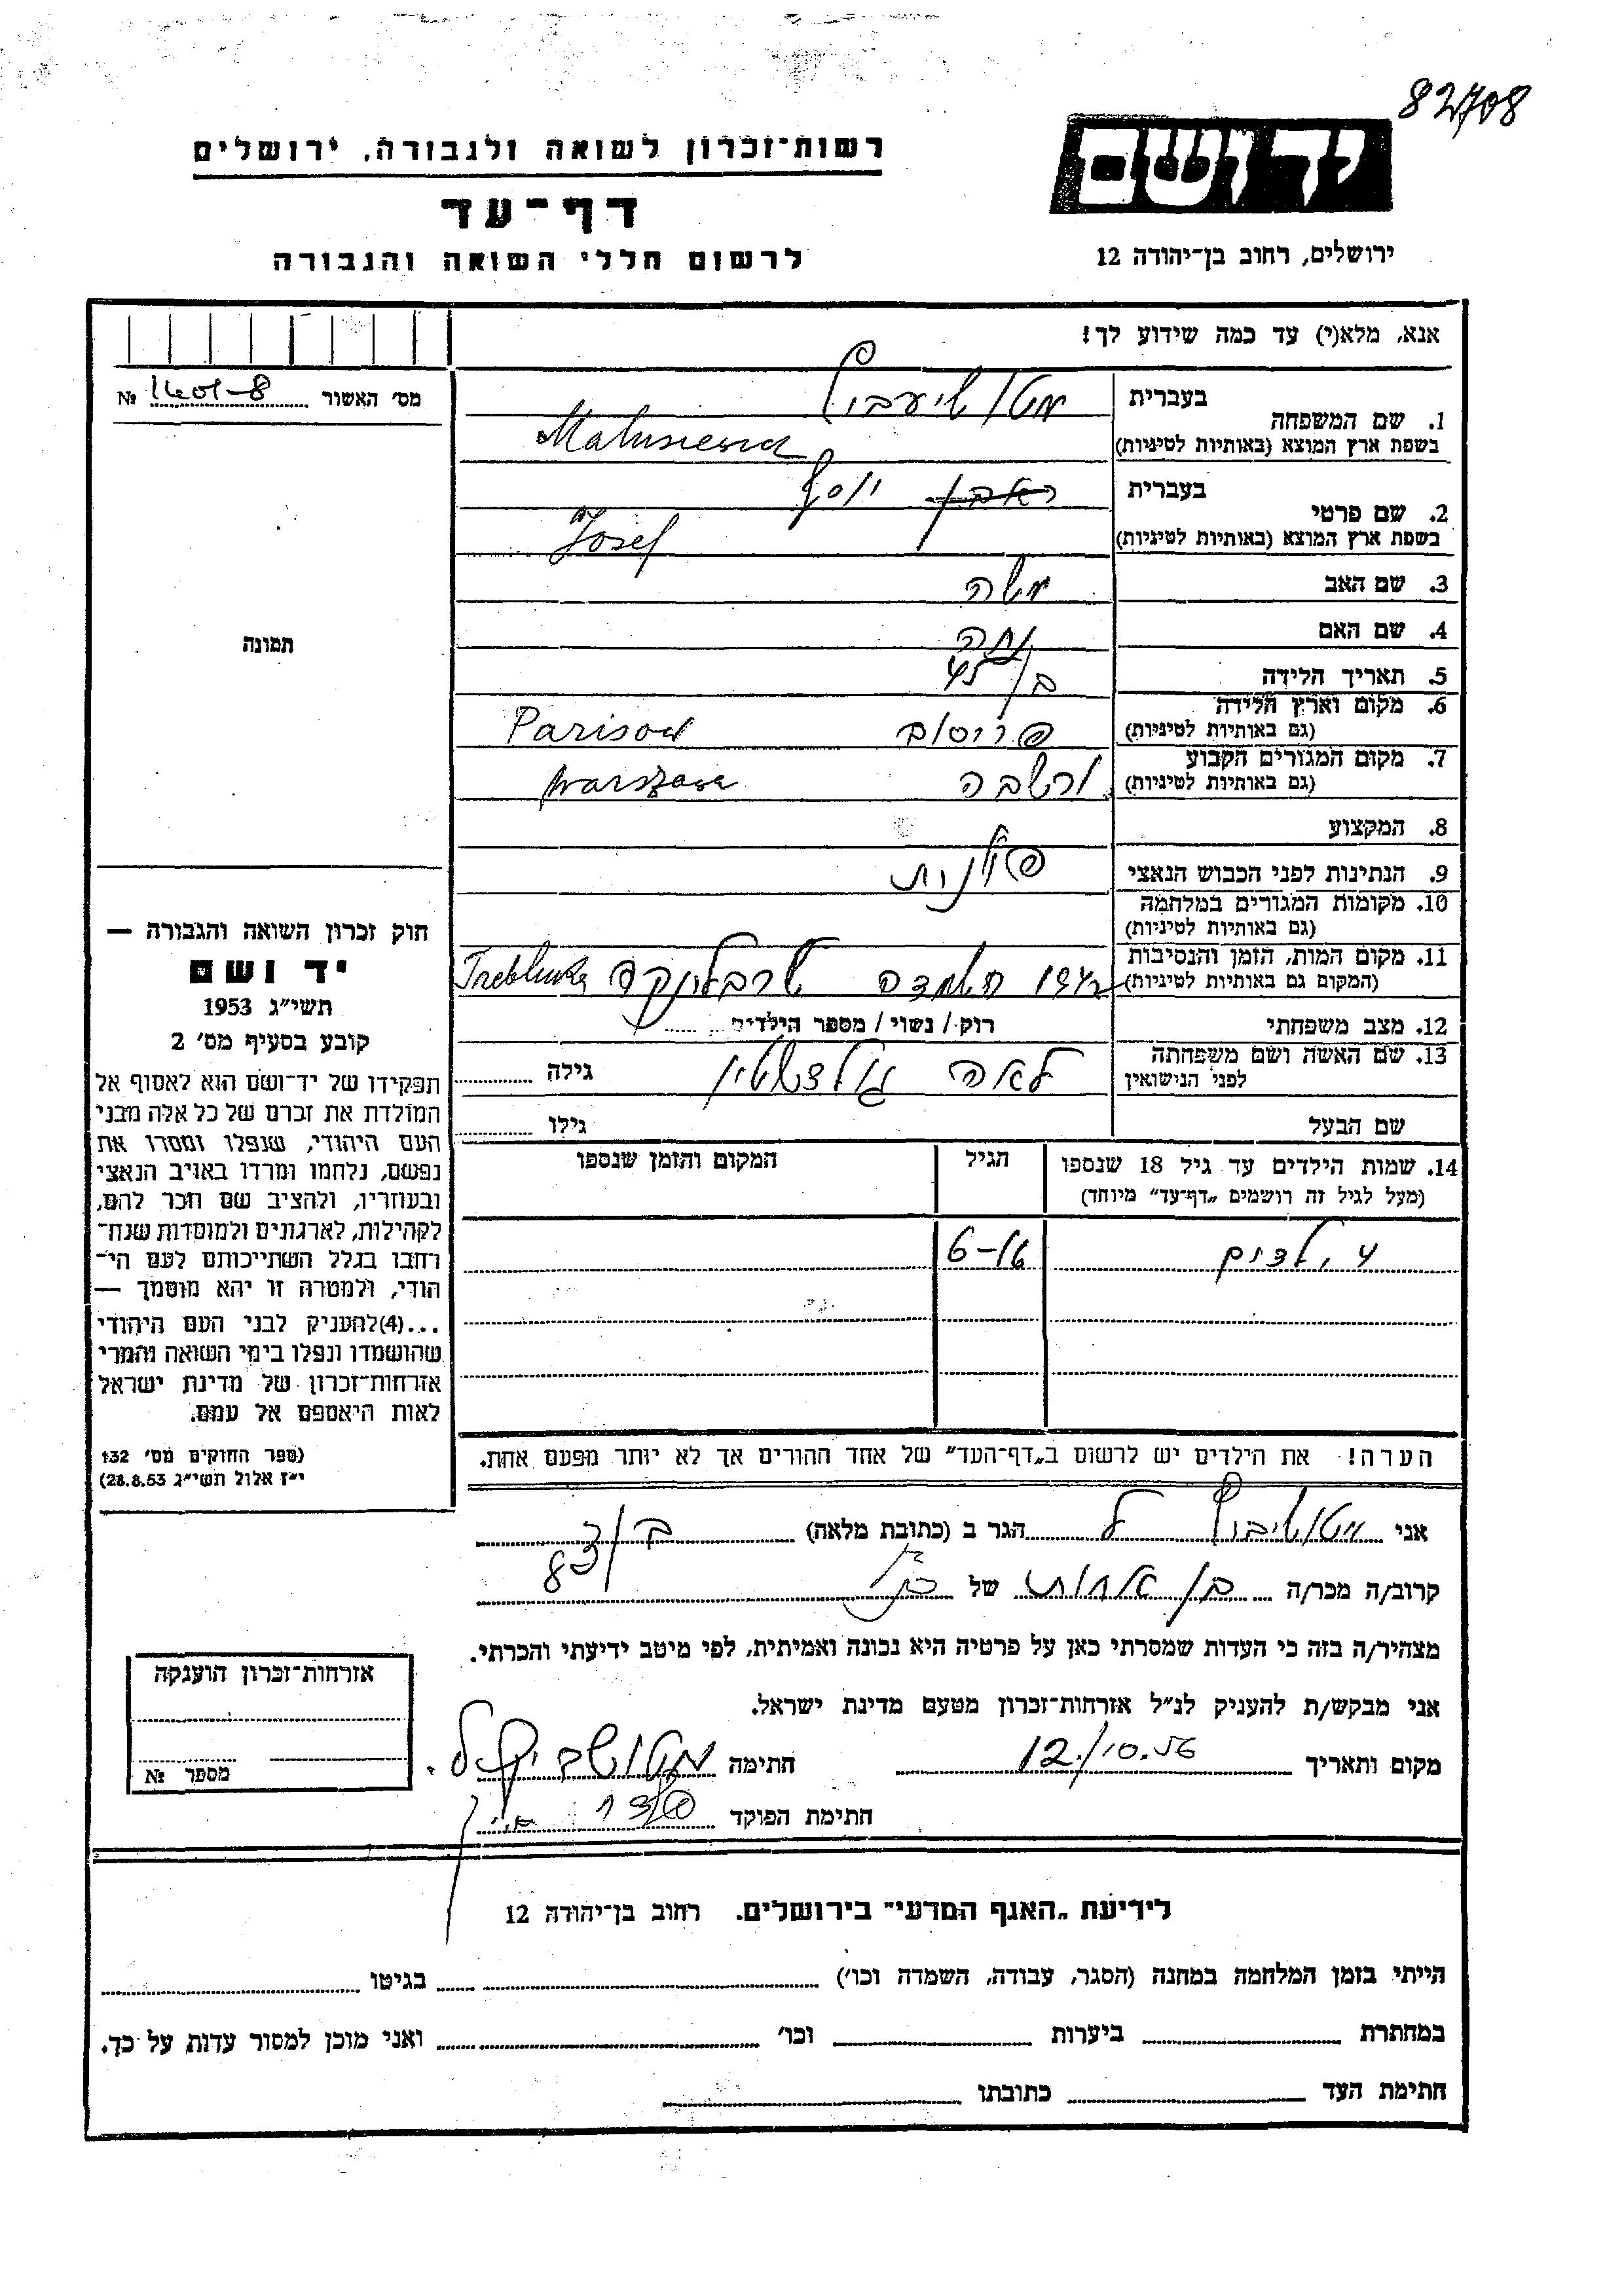 82708
יד ושם
רשות־זכרון לשואה ולגבורה, ירושלים
דף־עד
ירושלים, רחוב בן־יהודה 12
לרשום חללי השואה והגבורה
אנא, מלא(י) עד כמה שידוע לך!
מס׳ האשור № 1401-8
1. שם המשפחה
בעברית
בשפת ארץ המוצא (באותיות לטיניות)
2. שם פרטי
בעברית יוסף
בשפת ארץ המוצא (באותיות לטיניות) Josef
3. שם האב משה
4. שם האם
5. תאריך הלידה בן 45
6. מקום וארץ הלידה
(גם באותיות לטיניות) פריסוב Parisow
7. מקום המגורים הקבוע
(גם באותיות לטיניות) ורשבה Warszawa
8. המקצוע
9. הנתינות לפני הכבוש הנאצי פולנית
10. מקומות המגורים במלחמה
(גם באותיות לטיניות)
11. מקום המות, הזמן והנסיבות
(המקום גם באותיות לטיניות) 1942 השמדה טרבלינקה Treblinka
12. מצב משפחתי רוק / נשוי / מספר הילדים
13. שם האשה ושם משפחתה
לפני הנישואין לאה גולדשטיין גילה
שם הבעל גילו
14. שמות הילדים עד גיל 18 שנספו
(מעל לגיל זה רושמים „דף־עד" מיוחד)
הגיל
המקום והזמן שנספו
4 ילדים 6-16
הערה! את הילדים יש לרשום ב„דף־העד" של אחד ההורים אך לא יותר מפעם אחת.
תמונה
חוק זכרון השואה והגבורה —
יד ושם
תשי״ג 1953
קובע בסעיף מס׳ 2
תפקידו של יד־ושם הוא לאסוף אל
המולדת את זכרם של כל אלה מבני
העם היהודי, שנפלו ומסרו את
נפשם, נלחמו ומרדו באויב הנאצי
ובעוזריו, ולהציב שם וזכר להם,
לקהילות, לארגונים ולמוסדות שנח־
רבו בגלל השתייכותם לעם הי־
הודי, ולמטרה זו יהא מוסמך —
...(4)להעניק לבני העם היהודי
שהושמדו ונפלו בימי השואה והמרי
אזרחות־זכרון של מדינת ישראל
לאות היאספם אל עמם.
(ספר החוקים מס׳ 132
י״ז אלול תשי״ג 28.8.53)
אני הגר ב (כתובת מלאה)
קרוב/ה מכר/ה בן אחות של
מצהיר/ה בזה כי העדות שמסרתי כאן על פרטיה היא נכונה ואמיתית, לפי מיטב ידיעתי והכרתי.
אני מבקש/ת להעניק לנ״ל אזרחות־זכרון מטעם מדינת ישראל.
מקום ותאריך 12/10.56 חתימה
חתימת הפוקד
אזרחות־זכרון הוענקה
מספר №
לידיעת „האגף המדעי" בירושלים. רחוב בן־יהודה 12
הייתי בזמן המלחמה במחנה (הסגר, עבודה, השמדה וכו׳) בגיטו
במחתרת ביערות וכו׳ ואני מוכן למסור עדות על כך.
חתימת העד כתובתו